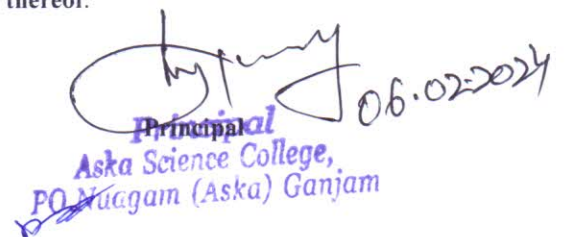 thereof.
06.02.2024
Principal
Principal
Aska Science College,
PO Nuagam (Aska) Ganjam